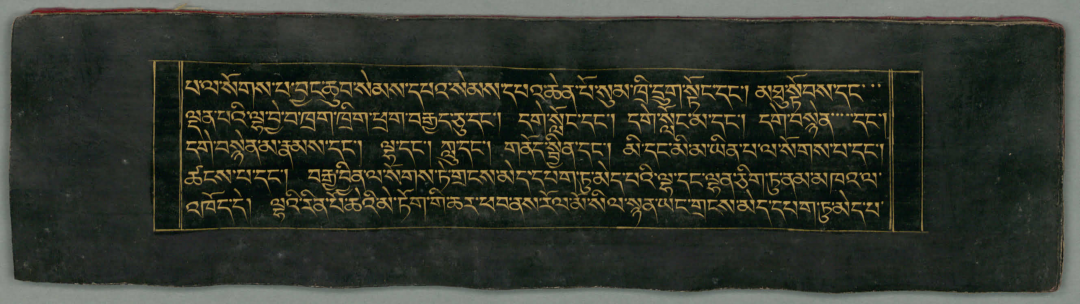 པ་ལ་སོགས་པ་བྱང་ཆུབ་སེམས་དཔའ་སེམས་དཔའ་ཆེན་པོ་སུམ་ཁྲི་དྲུག་སྟོང་དང༌། མཐུ་སྟོབས་དང་
ལྡན་པའི་ལྷ་བྱེ་བ་ཁྲག་ཁྲིག་ཕྲག་བརྒྱད་ཅུ་དང༌། དགེ་སློང་དང༌། དགེ་སློང་མ་དང༌། དགེ་བསྙེན་དང༌།
དགེ་བསྙེན་མ་རྣམས་དང༌། ལྷ་དང༌། ཀླུ་དང༌། གནོད་སྦྱིན་དང༌། མི་དང་མི་མ་ཡིན་པ་ལ་སོགས་པ་དང༌།
ཚངས་པ་དང༌། བརྒྱ་བྱིན་ལ་སོགས་ཏེ་གྲངས་མེད་དཔག་ཏུ་མེད་པའི་ལྷ་དང་ལྷན་ཅིག་ཏུ་ནམ་མཁའ་ལ་
འཁོད་དེ། ལྷའི་རིན་པོ་ཆེའི་མེ་ཏོག་གི་ཆར་ཕབ་ནས་རོལ་མོ་སིལ་སྙན་ཡང་གྲངས་མེད་དཔག་ཏུ་མེད་པ་